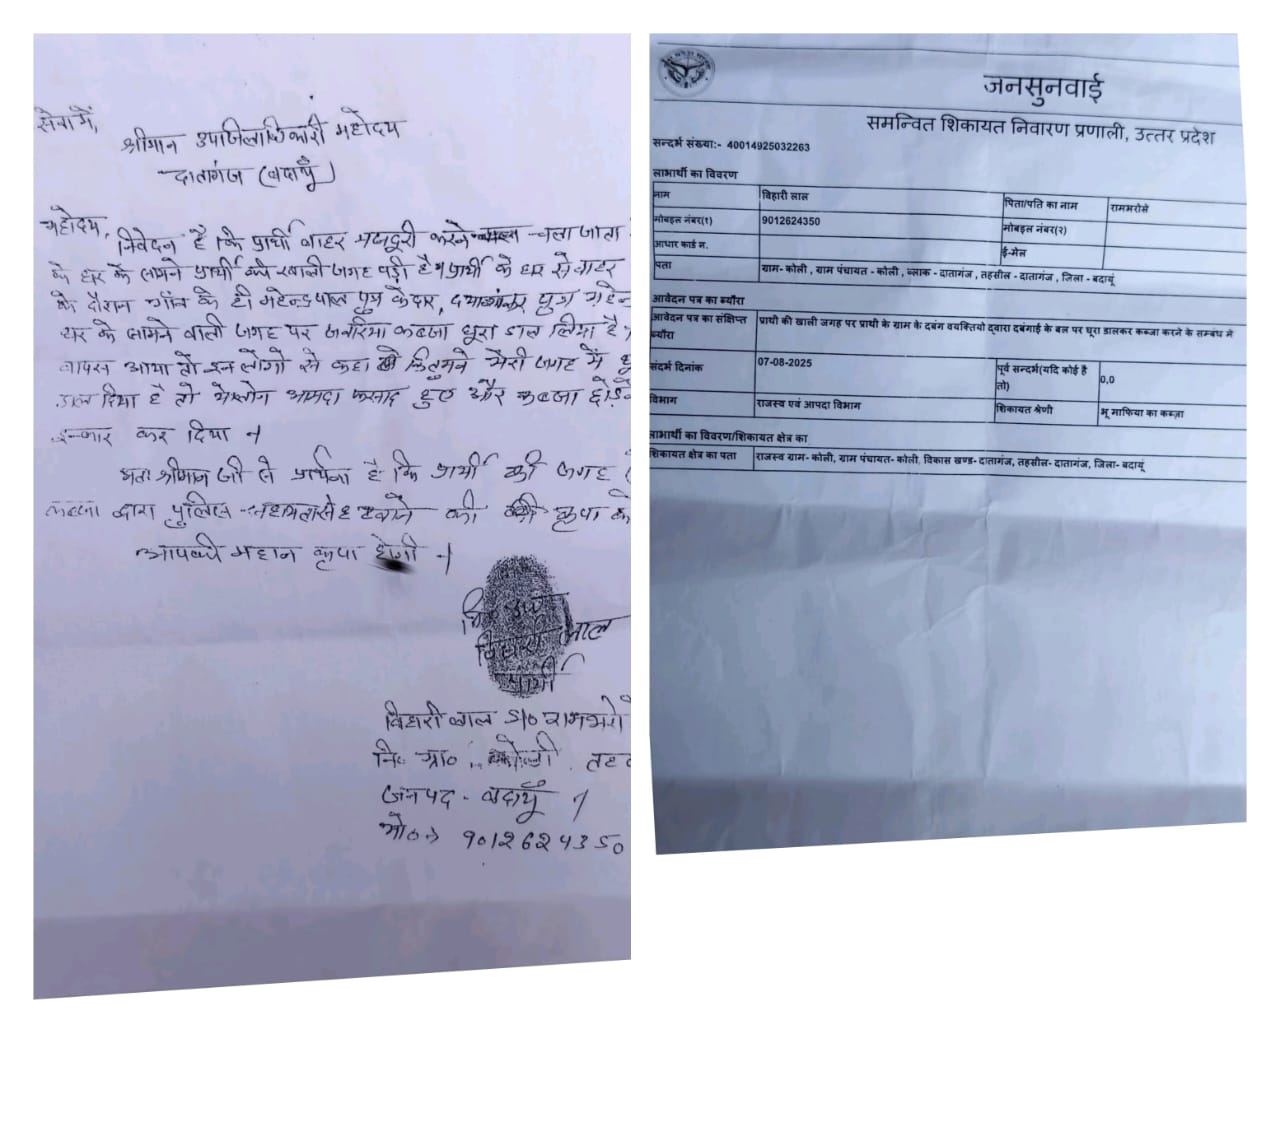 सेवा में,
श्रीमान उपजिलाधिकारी महोदय
दातागंज (बदायूँ)
महोदय,
निवेदन है कि प्रार्थी बाहर मजदूरी करने चला जाता
के घर के सामने प्रार्थी की खाली जगह पड़ी है। प्रार्थी के घर से बाहर
के दौरान गाँव के ही महेन्द्रपाल पुत्र केदार, पुत्र
घर के सामने वाली जगह पर जबरिया कब्जा घूरा डाल लिया है।
वापस आया तो इन लोगों से कहा कि तुमने मेरी जगह में
डाल दिया है तो ये लोग आमदा फसाद हुए और कब्जा
इन्कार कर दिया ।
अतः श्रीमान जी से प्रार्थना है कि प्रार्थी की जगह
कब्जा द्वारा पुलिस सहायता से हटवाने की कृपा
आपकी महान कृपा होगी ।
प्रार्थी
विहारी लाल S/o
नि० ग्रा० कोली
जनपद - बदायूँ ।
मो० ९०१२६२४३५०
जनसुनवाई
समन्वित शिकायत निवारण प्रणाली, उत्तर प्रदेश
सन्दर्भ संख्या:- 40014925032263
लाभार्थी का विवरण
नाम बिहारी लाल पिता/पति का नाम रामभरोसे
मोबाइल नंबर(१) 9012624350 मोबाइल नंबर(२)
आधार कार्ड न. ई-मेल
पता ग्राम- कोली , ग्राम पंचायत - कोली , ब्लाक - दातागंज , तहसील - दातागंज , जिला - बदायूं
आवेदन पत्र का ब्यौरा
आवेदन पत्र का संक्षिप्त ब्यौरा प्राथी की खाली जगह पर प्राथी के ग्राम के दबंग वयक्तियो द्वारा दबंगाई के बल पर घूरा डालकर कब्जा करने के सम्बंध में
संदर्भ दिनांक 07-08-2025 पूर्व सन्दर्भ(यदि कोई है तो) 0,0
विभाग राजस्व एवं आपदा विभाग शिकायत श्रेणी भू माफिया का कब्ज़ा
लाभार्थी का विवरण/शिकायत क्षेत्र का
शिकायत क्षेत्र का पता राजस्व ग्राम- कोली, ग्राम पंचायत- कोली, विकास खण्ड- दातागंज, तहसील- दातागंज, जिला- बदायूं